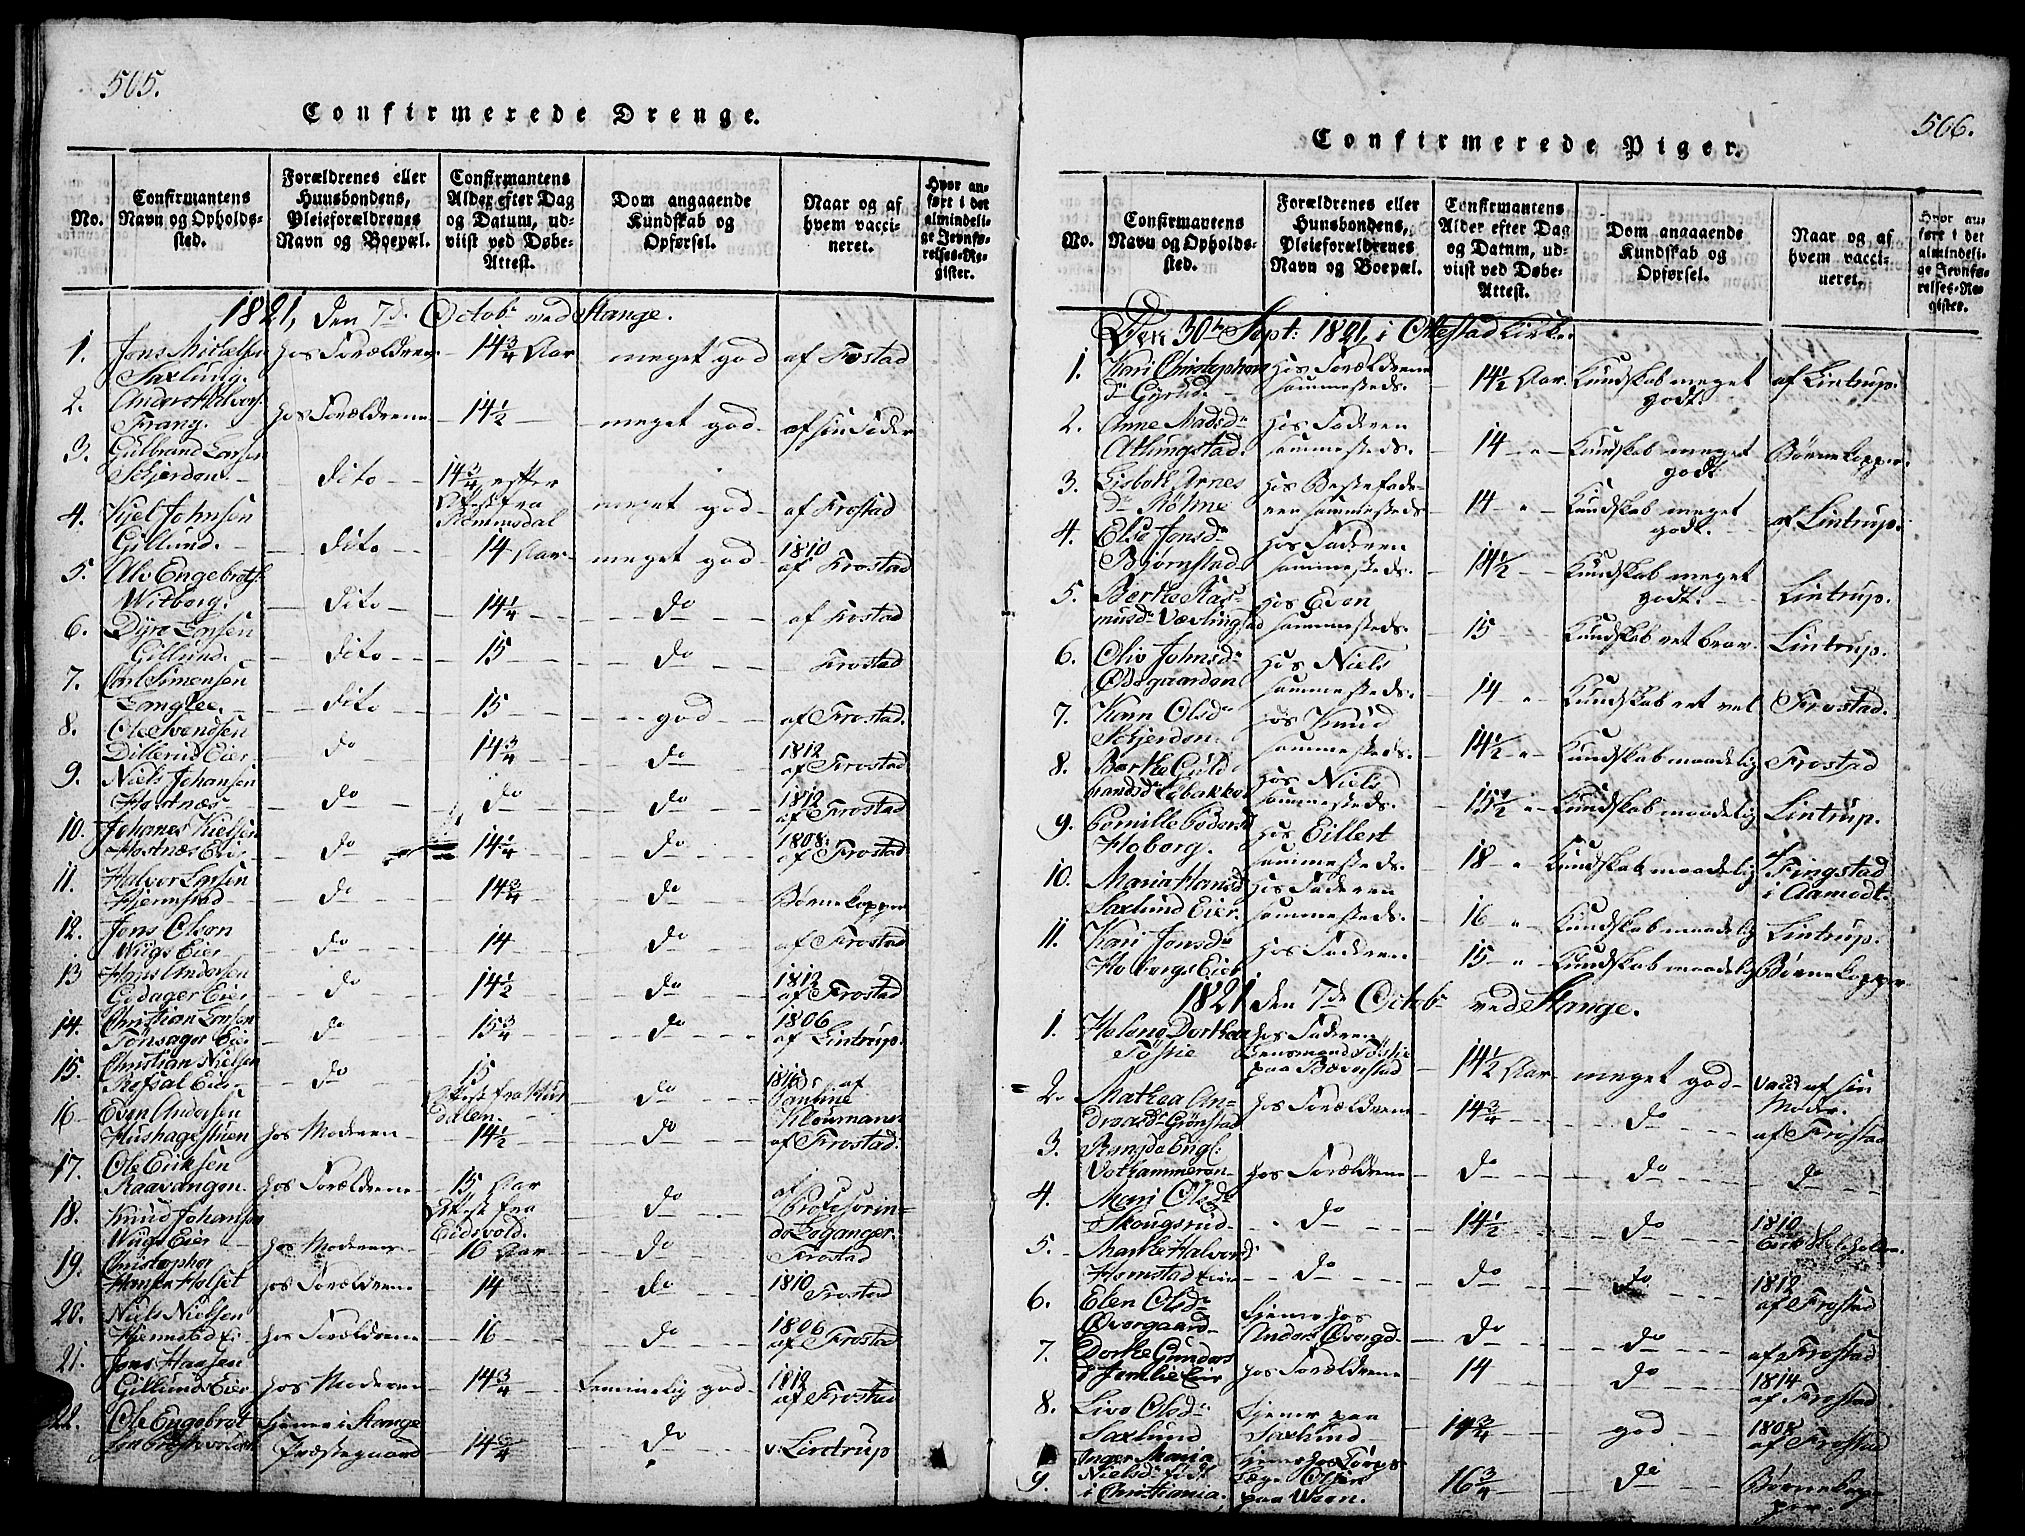 505.
Confirmerede Drenge.
No.
Confirmantens
Navn og Opholds-
sted.
Forældrenes eller
Huusbondens,
Pleieforældrenes
Navn og Boepæl.
Confirmantens
Alder efter Dag
og Datum, ud-
viist ved Døbe-
Attest.
Dom angaaende
Kundskab og
Opførsel.
Naar og af
hvem vacci-
neret.
Hvor an-
ført i det
almindeli-
ge Jevnfø-
relses-Re-
gister.
1821, den 7de Octobr ved Stange.
1. Jens Michelsen Saxlung. hos Forældrene 14 3/4 Aar meget god af Frostad
2. Anders Halvors. Frang. hos Forældrene 14 1/2 meget god af sin Fader
3. Gulbrand Larsen Schjerden dito 14 3/4 efter Attest fra Rommsdal meget god af Frostad
4. Kjel Johnsen Gillund. dito 14 Aar meget god 1810 af Frostad
5. Alv Engebretsen Witberg. dito 14 1/4 do af Frostad
6. Dyre Larsen Gillund. dito 15 do Frostad
7. Carl Simensen Langlee. dito 15 god af Frostad.
8. Ole Svendsen Dillerud Eier do 14 3/4 do 1812 af Frostad
9. Niels Johansen Hostnæs do do do 1812 af Frostad
10. Johanes Nielsen Hostnæs Eie do 14 1/4 do 1808 af Frostad
11. Halvor Larsen Hjemstad do 14 3/4 do Børnekopper
12. Jens Olsen Wiigs Eier do 14 do af Frostad
13 Hans Andersen Godager Eier do 14 1/2 do 1812 af Frostad
14. Christian Larsen Tønsager Eie do 15 3/4 do 1806 af Lintrup.
15. Christian Nielsen Eier do 15 Attest fra dalen. do af Nøumans
16 Even Andersen Hushagestuen hos Moderen 14 1/2 do af Frostad.
17. Ole Eriksen Raavangen hos Forældrene 15 Aar Attest fra Eidsvold. do af
18. Knud Johansen Wiigs Eier hos Moderen 16 Aar do Frostad
19. Christopher Hansen Holset hos Forældrene 14 do 1810 Frostad
20. Niels Nielsen Hjemstad Ei hos Forældrene 16 do 1806 af Frostad
21. Jens Hansen Gillunds Eier hos Moderen 14 3/4 temmelig god 1812 af Frostad
22. Ole Engebret tjener i Stange Præstegaard 14 3/4 do v. Lintrup
566.
Confirmerede Piger.
No.
Confirmantens
Navn og Opholds-
sted.
Forældrenes eller
Huusbondens,
Pleieforældrenes
Navn og Boepæl.
Confirmantens
Alder efter Dag
og Datum, ud-
viist ved Døbe-
Attest.
Dom angaaende
Kundskab og
Opførsel.
Naar og af
hvem vacci-
neret.
Hvor an-
ført i det
almindeli-
ge Jevnfø-
relses-Re-
gister.
Den 30te Sept: 1821, i Ottestad Kirke.
1. Kari Christophers dr Gyrud. hos Forældrene sammesteds. 14 1/2 Aar. Kundskab meget godt. af Lintrup.
2. Anne Madsdr Atlungstad. hos Faderen sammesteds. 14 Kundskab meget godt Børnekopper.
3. Lisbeth Arnes dr Røhne hos Bestefaderen sammesteds 14 Kundskab meget godt. af Lintrup.
4. Else Jensdr Bjørnstad hos Faderen sammesteds. 14 1/2 Kundskab meget godt. Lintrup.
5. Berthe Rasmusdr Vævlingstad hos Even sammesteds. 15 Kundskab ret brav. Lintrup.
6. Oliv Johnsdr Østgaarden hos Niels sammesteds. 14 Kundskab ret vel Frostad.
7. Karen Olsdr Schjerden. hos Knud sammesteds 14 1/2 Kundskab maadelig Frostad
8. Berthe Guldbrandsdr Løbakke hos Niels sammesteds. 15 1/2 Kundskab maadelig Lintrup.
9. Pernille Pedersd Hoberg. hos Eillert sammesteds. 18 Kundskab maadelig af Fingstad i Aamodt.
10. Maria Hansd Saxlund Eier. hos Faderen sammesteds. 16 Kundskab maadelig Lintrup.
11. Kari Jensdr Hobergs Eier hos Faderen 15 Kundskab maadelig Børnekopper
1821 den 7de Octobr ved Stange.
1. Helene Dorthea Tøstie hos Faderen Lensmand Tøstie paa Bævrestad 14 1/2 Aar meget god vaud af sin Moder.
2. Mathea Andreasdr Grønstad hos Forældrene 14 3/4 do af Frostad
3. Engl: Vothammeren hos Forældrene do do do
4. Mari Olsdr Skougsrud do 14 1/2 do 1810
5. Marthe Halvorsd Hemstad Eier do do do 1812 af Frostad
6. Elen Olsdr Øvergaard tjener hos Anders Øvergd. do do af Frostad
7. Dorthe Gunders d Eier hos Forældrene 14 do 1814 af Frostad
8. Live Olsdr Saxlund tjener paa Saxlund 14 3/4 god 1802 af Frostad
9. Inger Maria Nielsdr født i Christiania. tjener hos Olsen paa Ween. 16 3/4 do Børnekopper.